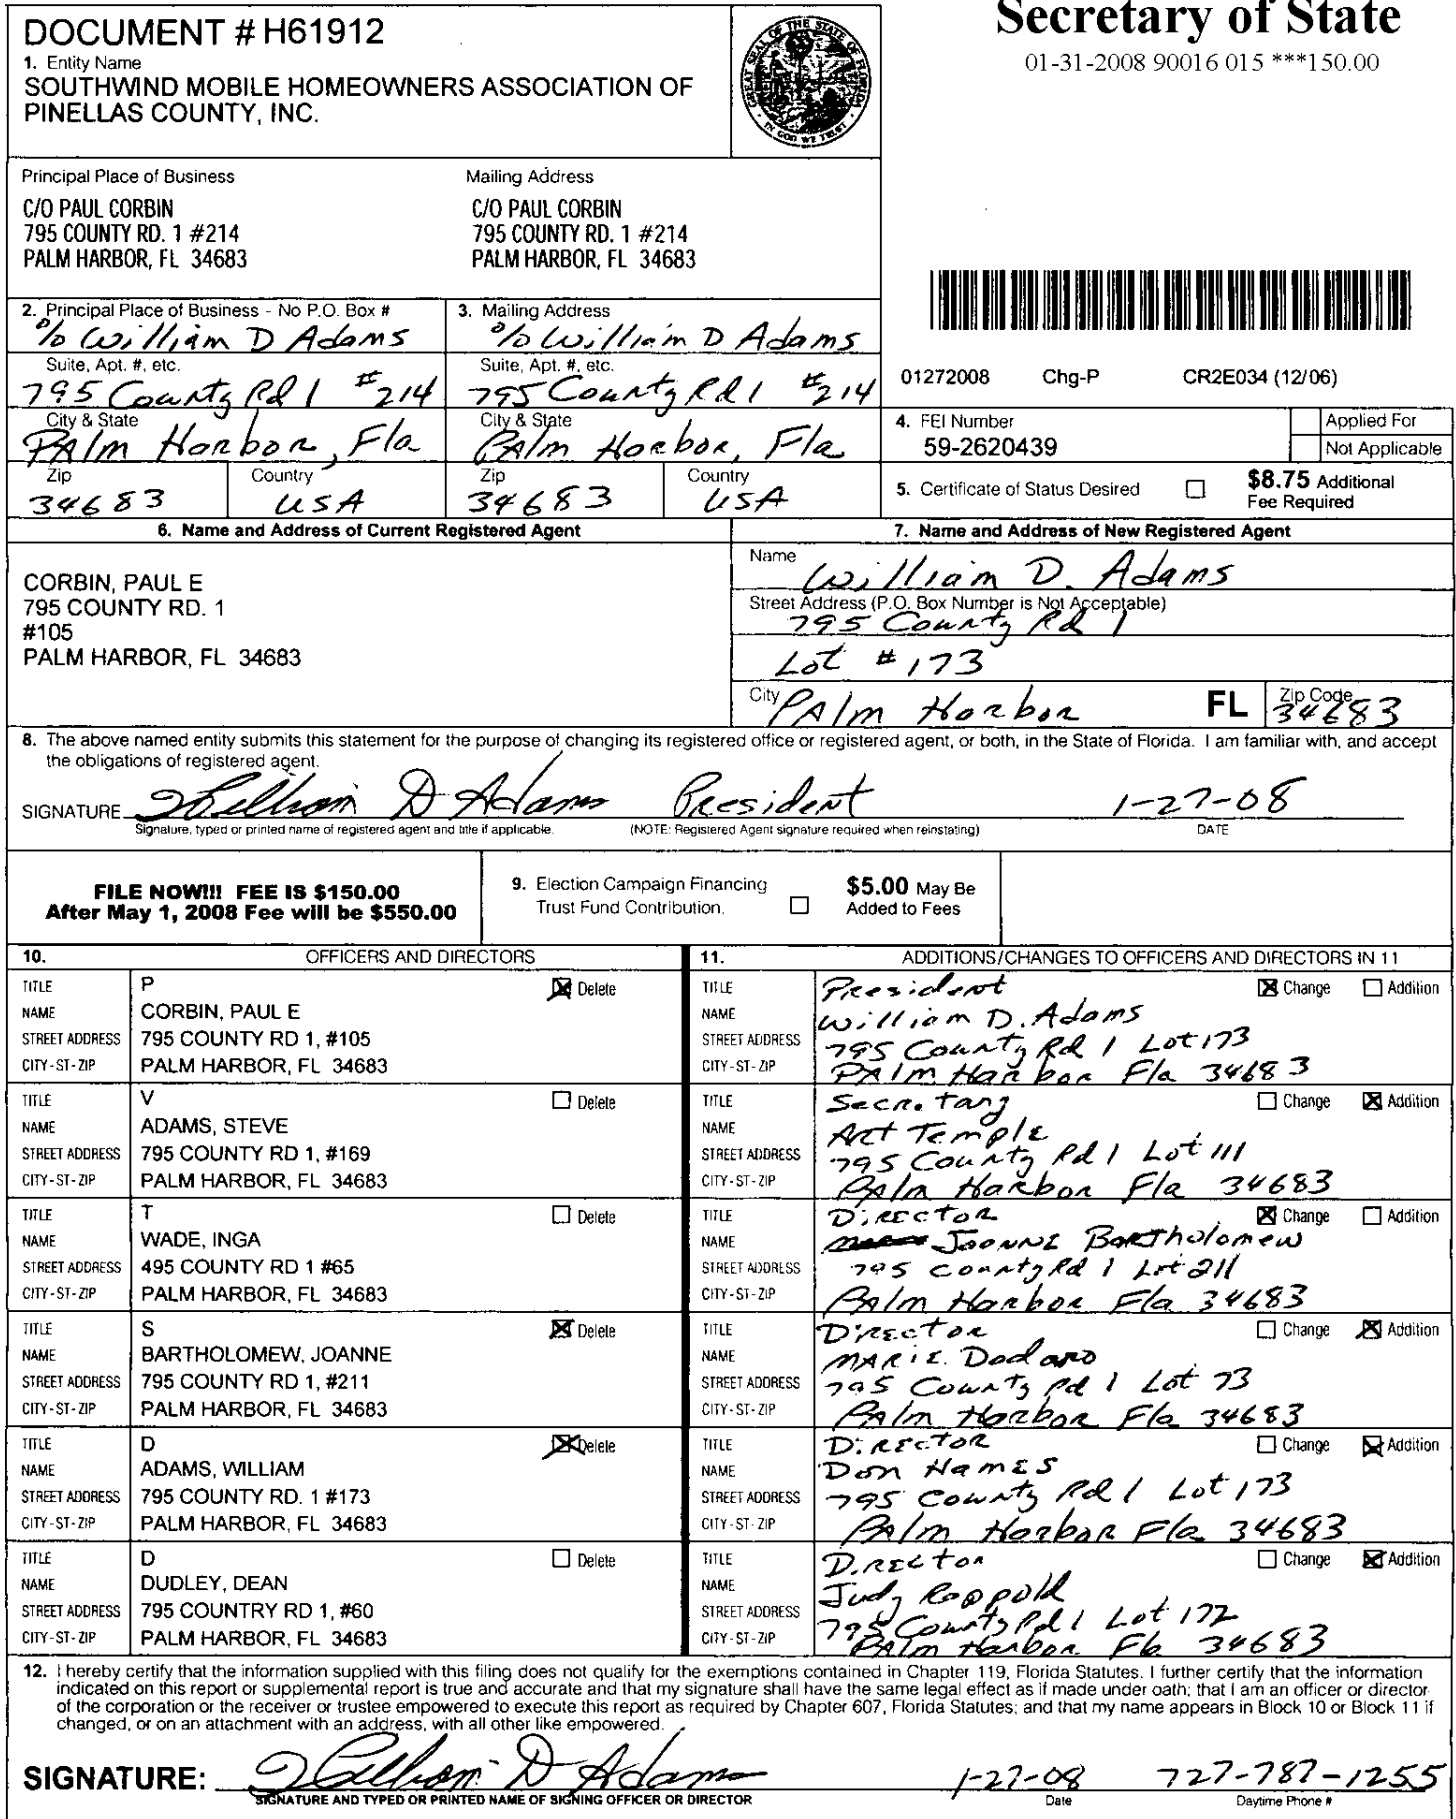 DOCUMENT # H61912
1. Entity Name
SOUTHWIND MOBILE HOMEOWNERS ASSOCIATION OF
PINELLAS COUNTY, INC.
GREAT SEAL OF THE STATE OF FLORIDA
IN GOD WE TRUST
Secretary of State
01-31-2008 90016 015 ***150.00
Principal Place of Business
C/O PAUL CORBIN
795 COUNTY RD. 1 #214
PALM HARBOR, FL 34683
Mailing Address
C/O PAUL CORBIN
795 COUNTY RD. 1 #214
PALM HARBOR, FL 34683
2. Principal Place of Business - No P.O. Box #
% William D Adams
Suite, Apt. #, etc.
795 County Rd 1 #214
City & State
PAlm Harbor, Fla
Zip Country
34683 USA
3. Mailing Address
% William D Adams
Suite, Apt. #, etc.
795 County Rd 1 #214
City & State
PAlm Harbor, Fla
Zip Country
34683 USA
01272008 Chg-P CR2E034 (12/06)
4. FEI Number
59-2620439
Applied For
Not Applicable
5. Certificate of Status Desired
$8.75 Additional
Fee Required
6. Name and Address of Current Registered Agent
CORBIN, PAUL E
795 COUNTY RD. 1
#105
PALM HARBOR, FL 34683
7. Name and Address of New Registered Agent
Name
William D. Adams
Street Address (P.O. Box Number is Not Acceptable)
795 County Rd 1
Lot #173
City PAlm Harbor FL Zip Code 34683
8. The above named entity submits this statement for the purpose of changing its registered office or registered agent, or both, in the State of Florida. I am familiar with, and accept
the obligations of registered agent.
SIGNATURE William D Adams President 1-27-08
Signature, typed or printed name of registered agent and title if applicable. (NOTE: Registered Agent signature required when reinstating) DATE
FILE NOW!!! FEE IS $150.00
After May 1, 2008 Fee will be $550.00
9. Election Campaign Financing
Trust Fund Contribution.
$5.00 May Be
Added to Fees
10. OFFICERS AND DIRECTORS
TITLE P Delete
NAME CORBIN, PAUL E
STREET ADDRESS 795 COUNTY RD 1, #105
CITY-ST-ZIP PALM HARBOR, FL 34683
TITLE V Delete
NAME ADAMS, STEVE
STREET ADDRESS 795 COUNTY RD 1, #169
CITY-ST-ZIP PALM HARBOR, FL 34683
TITLE T Delete
NAME WADE, INGA
STREET ADDRESS 495 COUNTY RD 1 #65
CITY-ST-ZIP PALM HARBOR, FL 34683
TITLE S Delete
NAME BARTHOLOMEW, JOANNE
STREET ADDRESS 795 COUNTY RD 1, #211
CITY-ST-ZIP PALM HARBOR, FL 34683
TITLE D Delete
NAME ADAMS, WILLIAM
STREET ADDRESS 795 COUNTY RD. 1 #173
CITY-ST-ZIP PALM HARBOR, FL 34683
TITLE D Delete
NAME DUDLEY, DEAN
STREET ADDRESS 795 COUNTRY RD 1, #60
CITY-ST-ZIP PALM HARBOR, FL 34683
11. ADDITIONS/CHANGES TO OFFICERS AND DIRECTORS IN 11
TITLE President Change Addition
NAME William D. Adams
STREET ADDRESS 795 County Rd 1 Lot 173
CITY-ST-ZIP PAlm Harbor Fla 34683
TITLE Secretary Change Addition
NAME Art Temple
STREET ADDRESS 795 County Rd 1 Lot 111
CITY-ST-ZIP PAlm Harbor Fla 34683
TITLE Director Change Addition
NAME JOANNE Bartholomew
STREET ADDRESS 795 County Rd 1 Lot 211
CITY-ST-ZIP PAlm Harbor Fla 34683
TITLE Director Change Addition
NAME MARIE Dodaro
STREET ADDRESS 795 County Rd 1 Lot 73
CITY-ST-ZIP PAlm Harbor Fla 34683
TITLE Director Change Addition
NAME Don Hames
STREET ADDRESS 795 County Rd 1 Lot 173
CITY-ST-ZIP PAlm Harbor Fla 34683
TITLE Director Change Addition
NAME Judy
STREET ADDRESS 795 County Rd 1 Lot 172
CITY-ST-ZIP PAlm Harbor Fla 34683
12. I hereby certify that the information supplied with this filing does not qualify for the exemptions contained in Chapter 119, Florida Statutes. I further certify that the information
indicated on this report or supplemental report is true and accurate and that my signature shall have the same legal effect as if made under oath; that I am an officer or director
of the corporation or the receiver or trustee empowered to execute this report as required by Chapter 607, Florida Statutes; and that my name appears in Block 10 or Block 11 if
changed, or on an attachment with an address, with all other like empowered.
SIGNATURE: William D Adams 1-27-08 727-787-1255
SIGNATURE AND TYPED OR PRINTED NAME OF SIGNING OFFICER OR DIRECTOR Date Daytime Phone #